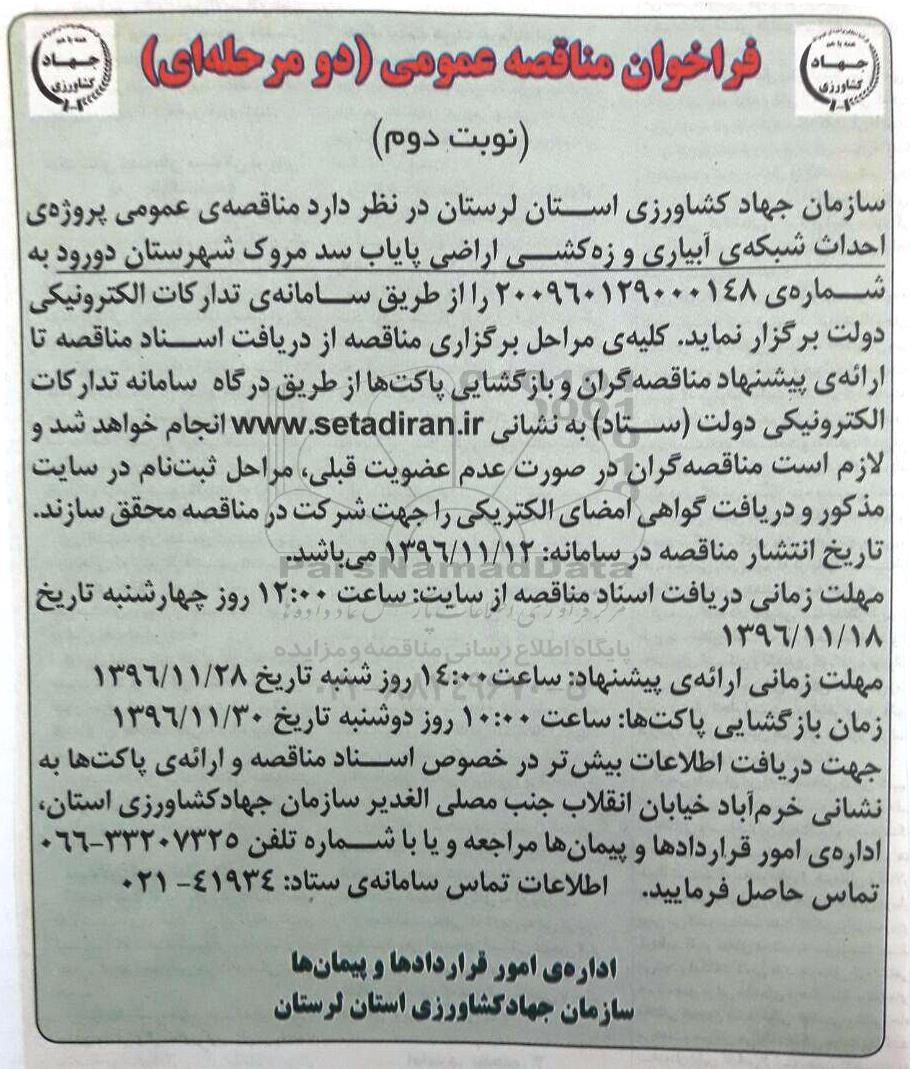 همه با هم
جهاد
کشاورزی
همه با هم
جهاد
کشاورزی
فراخوان مناقصه عمومی (دو مرحله‌ای)
(نوبت دوم)
سازمان جهاد کشاورزی استان لرستان در نظر دارد مناقصه‌ی عمومی پروژه‌ی
احداث شبکه‌ی آبیاری و زه‌کشی اراضی پایاب سد مروک شهرستان دورود به
شماره‌ی ۲۰۰۹۶۰۱۲۹۰۰۰۱۴۸ را از طریق سامانه‌ی تدارکات الکترونیکی
دولت برگزار نماید. کلیه‌ی مراحل برگزاری مناقصه از دریافت اسناد مناقصه تا
ارائه‌ی پیشنهاد مناقصه‌گران و بازگشایی پاکت‌ها از طریق درگاه سامانه تدارکات
الکترونیکی دولت (ستاد) به نشانی www.setadiran.ir انجام خواهد شد و
لازم است مناقصه‌گران در صورت عدم عضویت قبلی، مراحل ثبت‌نام در سایت
مذکور و دریافت گواهی امضای الکتریکی را جهت شرکت در مناقصه محقق سازند.
تاریخ انتشار مناقصه در سامانه: ۱۳۹۶/۱۱/۱۲ می‌باشد.
ParsNamadData
مهلت زمانی دریافت اسناد مناقصه از سایت: ساعت ۱۲:۰۰ روز چهارشنبه تاریخ
۱۳۹۶/۱۱/۱۸
پایگاه اطلاع رسانی مناقصه و مزایده
مهلت زمانی ارائه‌ی پیشنهاد: ساعت ۱۴:۰۰ روز شنبه تاریخ ۱۳۹۶/۱۱/۲۸
زمان بازگشایی پاکت‌ها: ساعت ۱۰:۰۰ روز دوشنبه تاریخ ۱۳۹۶/۱۱/۳۰
جهت دریافت اطلاعات بیش‌تر در خصوص اسناد مناقصه و ارائه‌ی پاکت‌ها به
نشانی خرم‌آباد خیابان انقلاب جنب مصلی الغدیر سازمان جهادکشاورزی استان،
اداره‌ی امور قراردادها و پیمان‌ها مراجعه و یا با شماره تلفن ۳۳۲۰۷۳۲۵-۰۶۶
تماس حاصل فرمایید. اطلاعات تماس سامانه‌ی ستاد: ۴۱۹۳۴- ۰۲۱
اداره‌ی امور قراردادها و پیمان‌ها
سازمان جهادکشاورزی استان لرستان